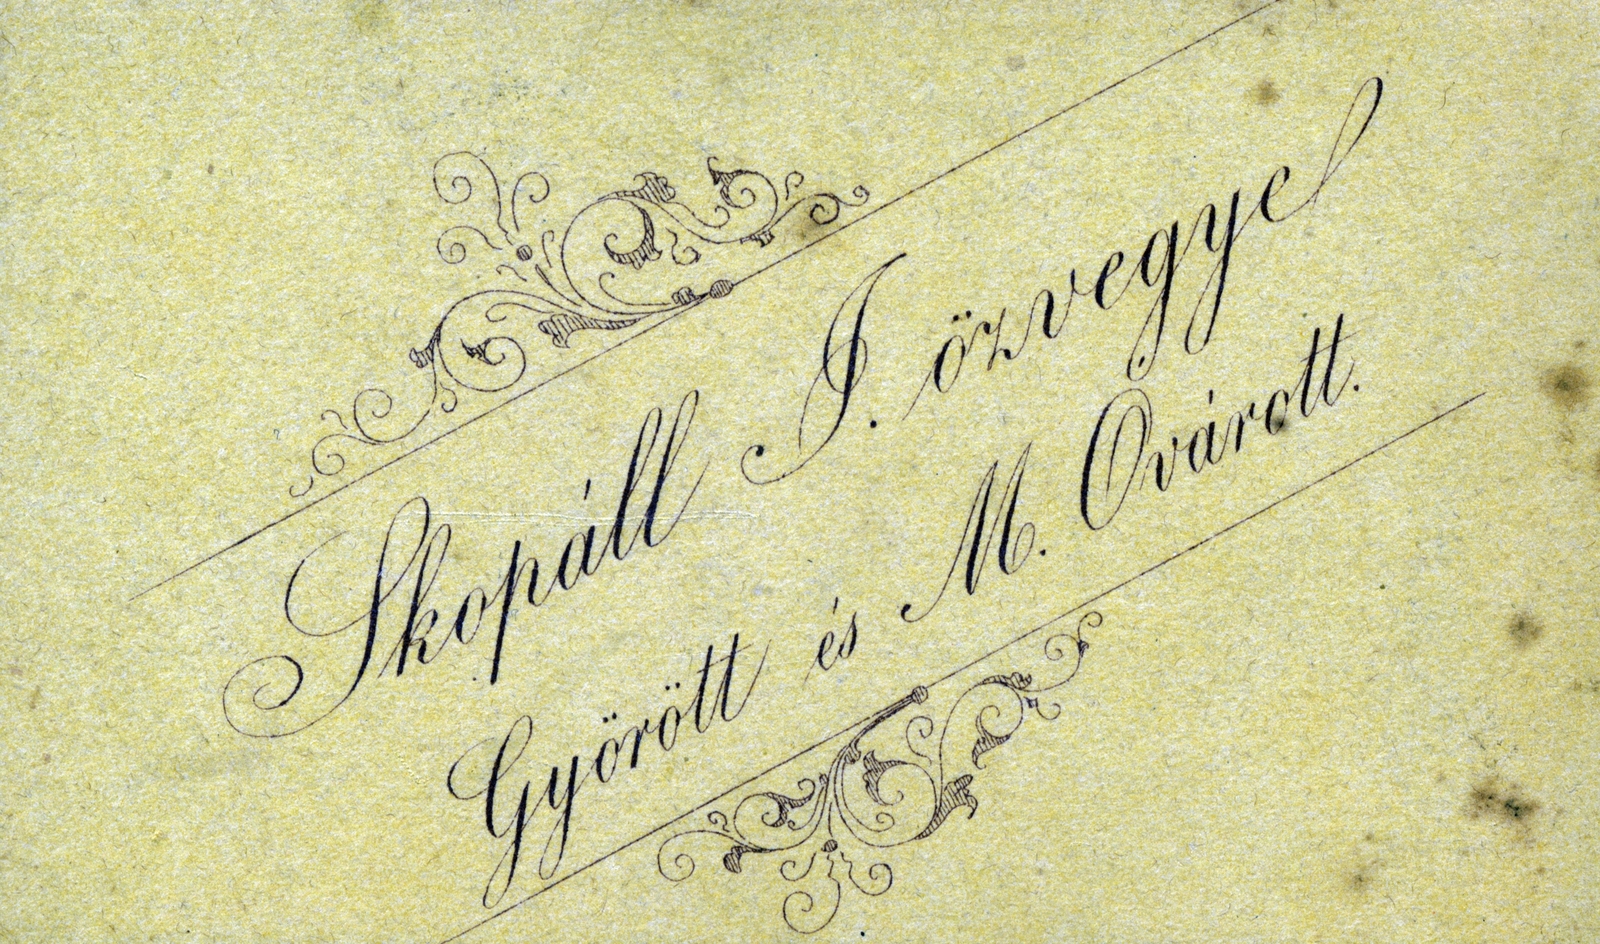 Skopáll J. özvegye
Györött és M. Ovárott.